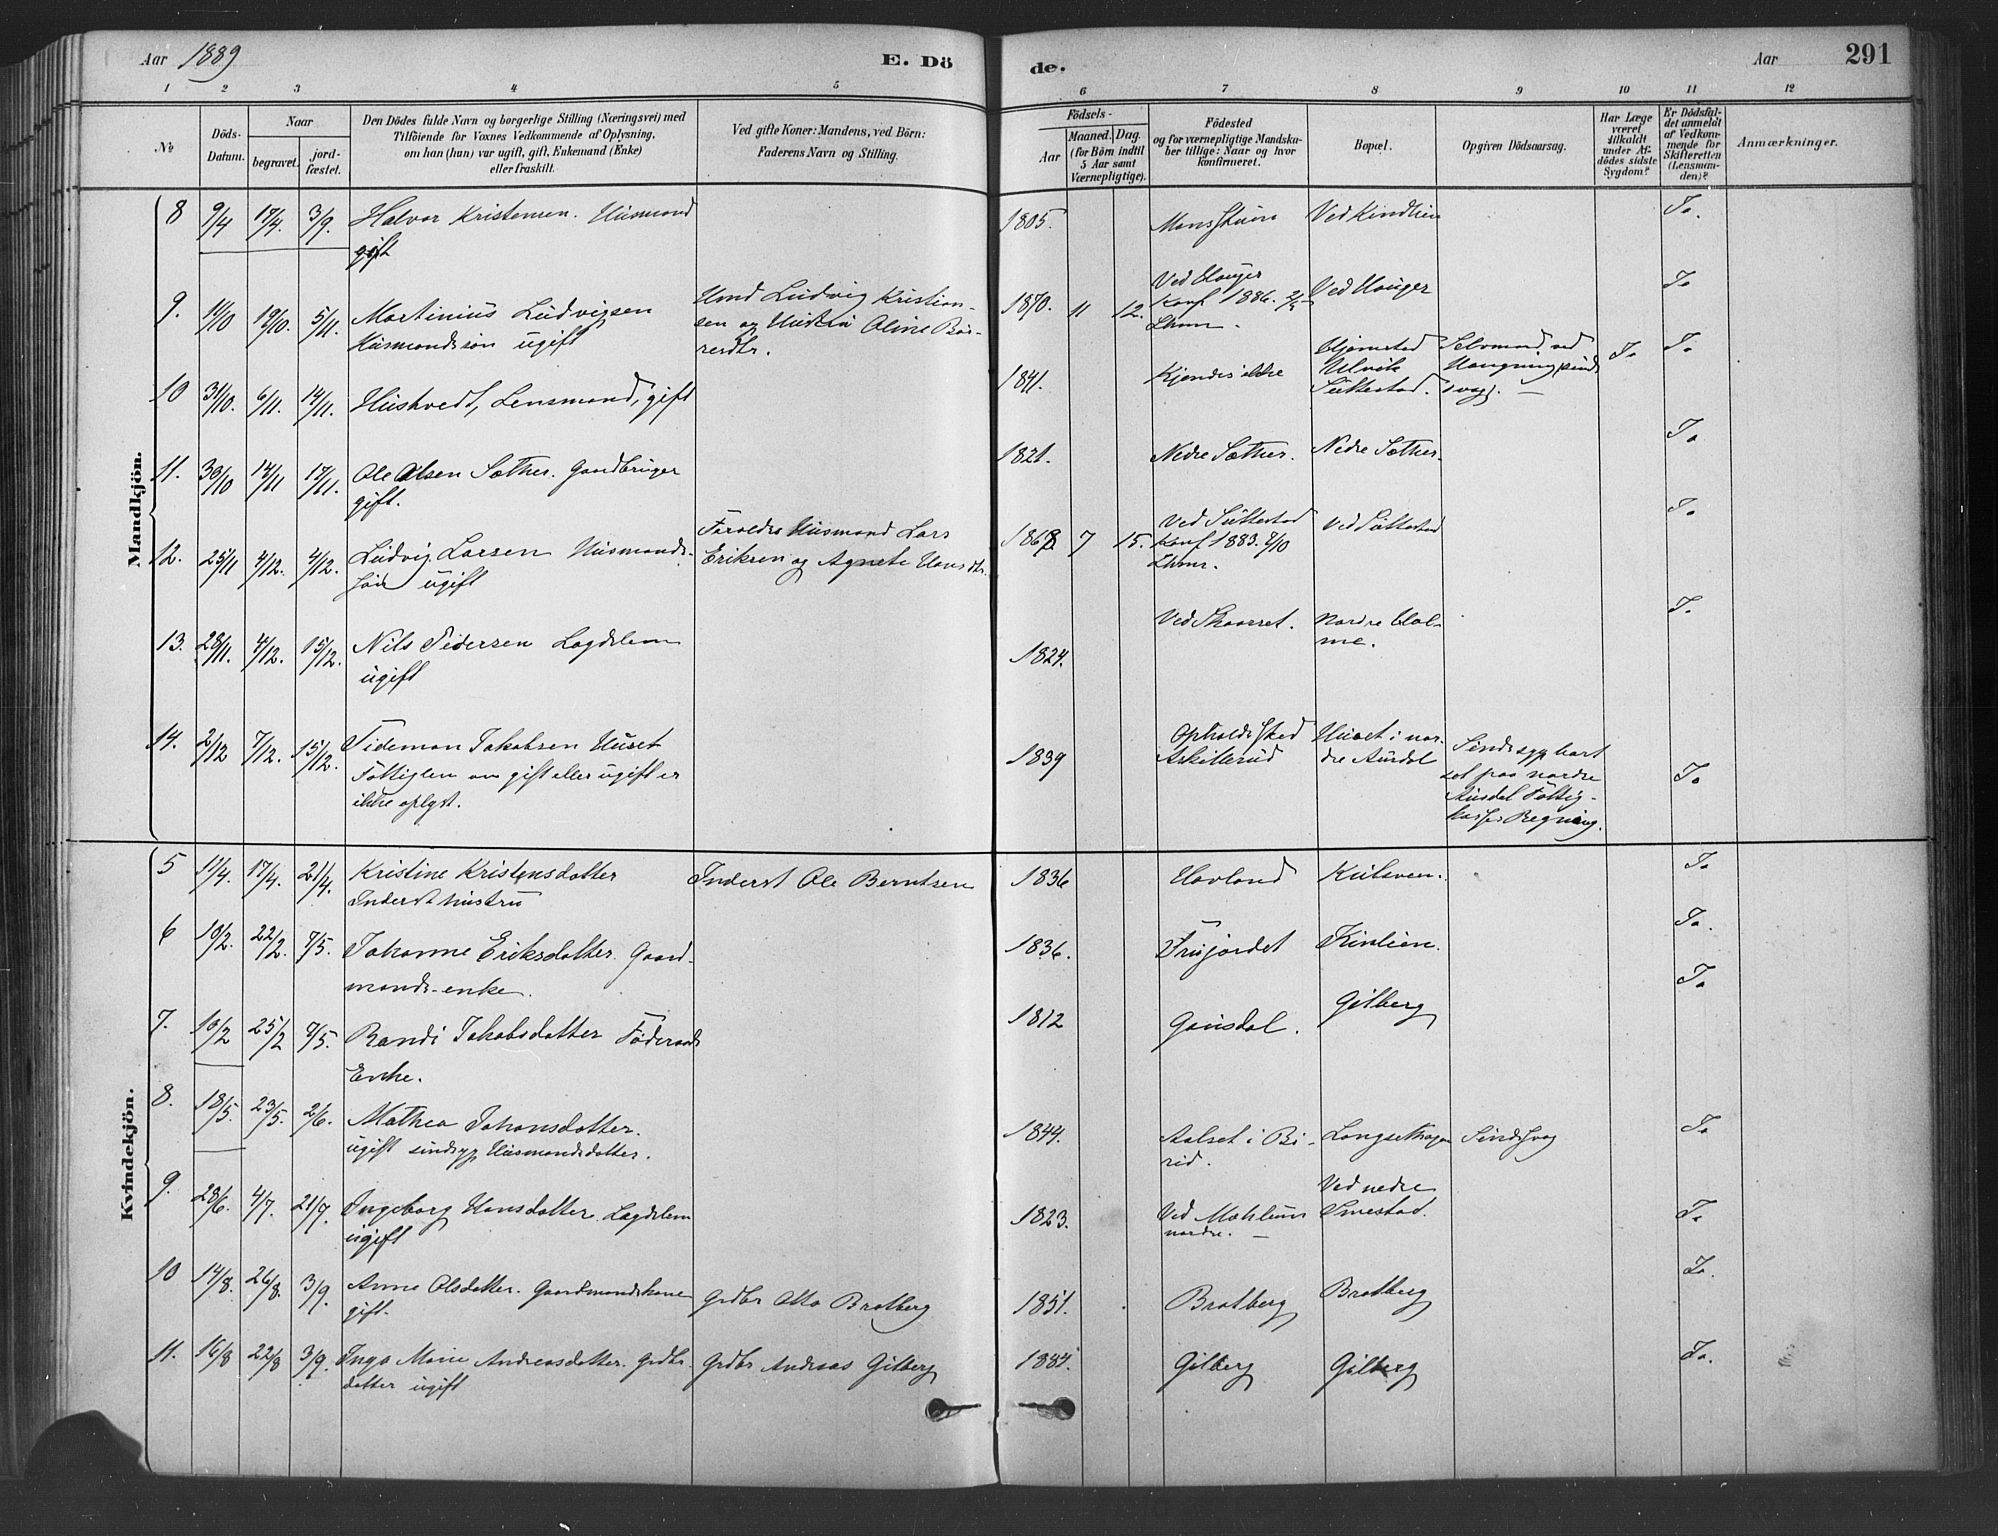 Aar 1889
E. Dö
de.
Aar
291
1 2 3 4 5
6 7 8 9 10 11 12
No
Döds-
Datum.
Naar
begravet.
jord-
fæstet.
Den Dödes fulde Navn og borgerlige Stilling (Næringsvei) med
Tilföiende for Voxnes Vedkommende af Oplysning,
om han (hun) var ugift, gift, Enkemand (Enke)
eller fraskilt.
Ved gifte Koner: Mandens, ved Börn:
Faderens Navn og Stilling.
Födsels-
Aar
Maaned. Dag.
(for Börn indtil
5 Aar samt
Værnepligtige).
Födested
og for værnepligtige Mandska-
ber tillige: Naar og hvor
konfirmeret.
Bopæl.
Opgiven Dödsaarsag.
Har Læge
været
tilkaldt
under Af-
dödes sidste
Sygdom?
Er Dödsfal-
det anmeldt
af Vedkom-
mende for
Skifteretten
(Lensman-
den)?
Anmærkninger.
Mandkjön.
8 9/4 17/4. 3/9. Halvor Kristensen. Husmand
gift
1805. Ved Kindlien Ja.
9. 14/10 19/10. 5/11. Martinius Ludvigsen
Husmandssøn ugift
Husmd Ludvig Kristian-
sen og Hustru Oline Bør-
resdtr.
1870. 11 12. Ved Hauger
Konf 1886.
Lhmr.
Ved Hauger Ja
10 31/10. 6/11. 14/11. Hustvedt, Lensmand, gift
1841. Kjendes ikke
Hjemsted
Ulvik
Suttestad.
Selvmord ved
Hængning, sind
svag. —
Ja Ja
11. 30/10 14/11 17/11. Ole Olsen Sæther. Gaardbruger
gift.
1821. Nedre Sæther. Nedre Sæther. Ja
12. 25/11 4/12. 4/12. Ludvig Larsen Husmands-
søn ugift
Foreldre Husmand Lars
Eriksen og Agnete Hansdtr.
1868 7 15. Ved Suttestad
Konf 1883. 7/10
Lhmr.
Ved Suttestad Ja
13. 28/11. 4/12. 15/12. Nils Pedersen Lægdslem
ugift
1824. Ved Skaarset. Nordre Hol-
me. Ja
14. 2/12 7/12. 15/12. Tideman Jakobsen Huset
Fattiglem om gift eller ugift er
ikke oplyst.
1839 Opholdssted
Askillerud
Huset i nor-
dre Aurdal
Sindssyg bort
sat paa nordre
Aurdal Fattig-
kasses Regning.
Ja
Kvindekjön.
5 11/4. 17/4. 21/4. Kristine Kristensdatter
Inderst hustru
Inderst Ole Berntsen
1836 Havland Ja
6 10/2. 22/2. 7/5. Johanne Eriksdatter. Gaard-
mands-enke.
1836. Frujordet Kinlien. Ja.
7. 10/2 25/2 7/5. Randi Jakobsdatter Føderaads
Enke.
1812 Gausdal. Gilberg Ja
8. 18/5. 23/5. 2/6. Mathea Johansdatter.
ugift sindsyg Husmandsdatter.
1844. Aalset i Bi-
rid. Sindssvag Ja
9. 28/6. 4/7. 21/7. Ingeborg Hansdatter. Lægdslem
ugift
1823. Ved Mæhlum
nordre. —
Ved nedre
Smestad. Ja
10 14/8. 26/8. 3/9. Anne Olsdatter. Gaardmandskone
gift.
Grdbr Otto Bratberg
1851. Bratberg Bratberg Ja.
11. 16/8 22/8 3/9. Inga Marie Andreasdatter. Grdbr.
datter ugift
Grdbr Andreas Gilberg
1884. Gilberg Gilberg Ja.